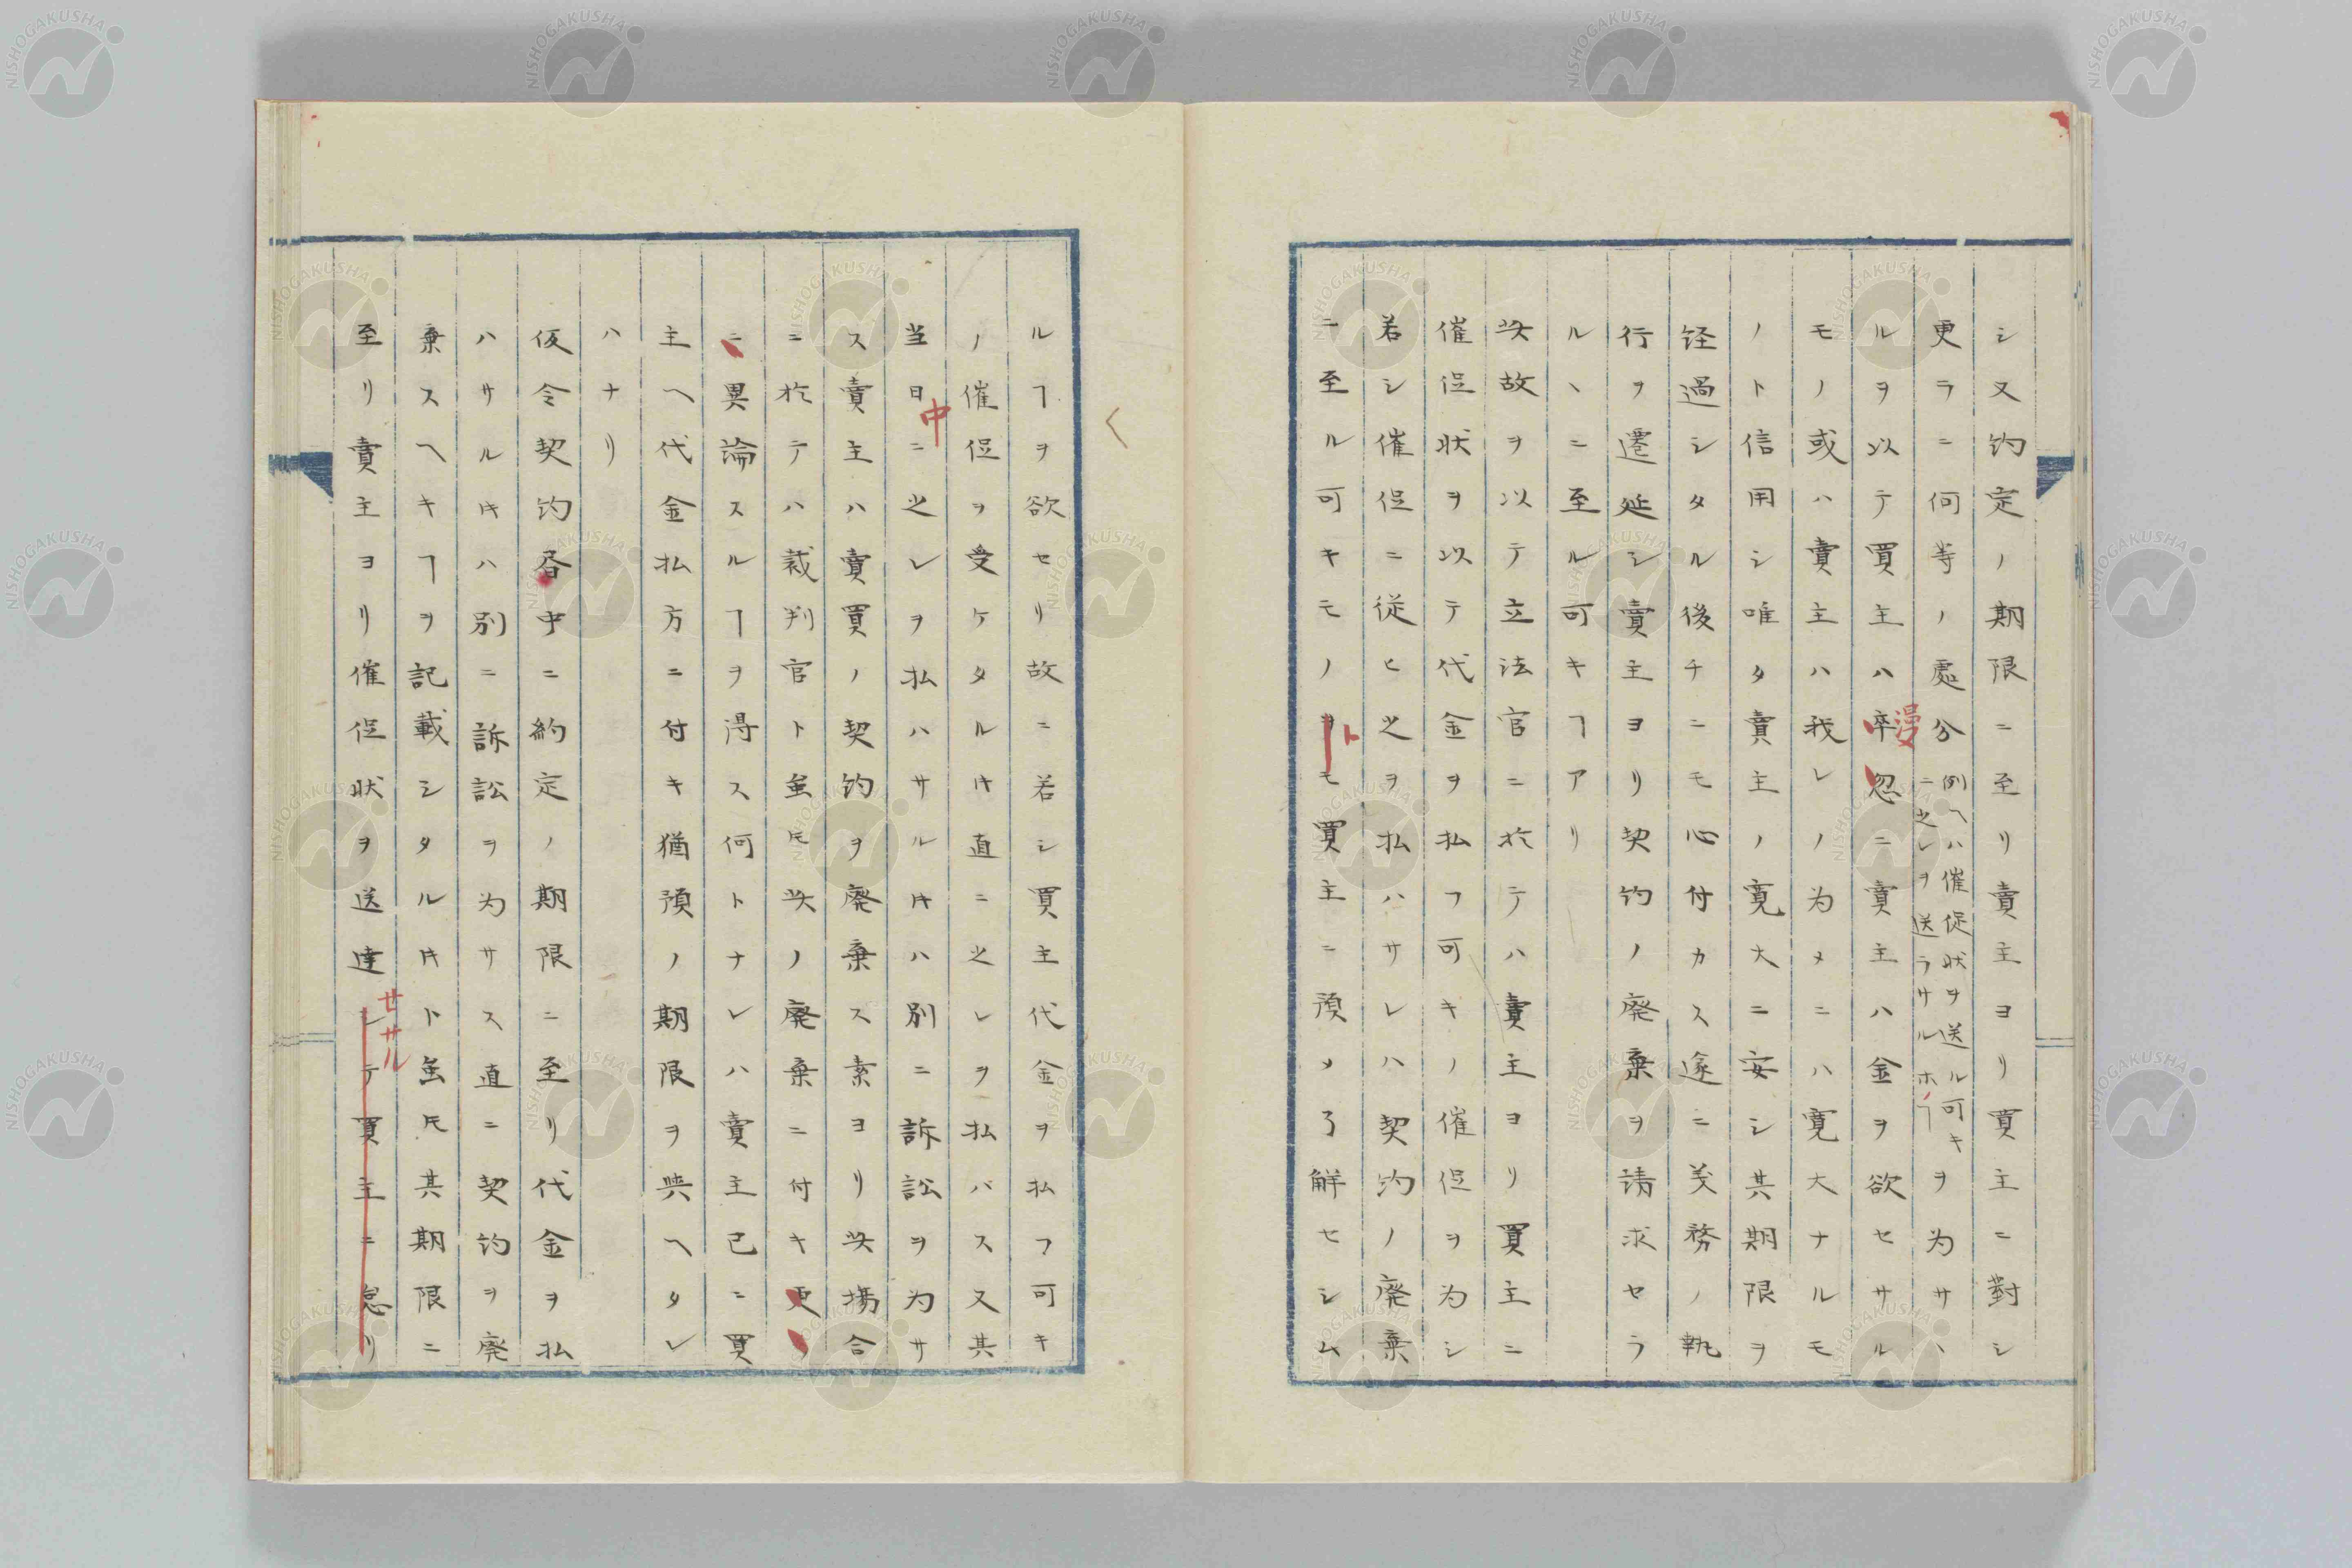 シ又約定ノ期限ニ至リ賣主ヨリ買主ニ對シ
更ラニ何等ノ處分例ヘハ催促状ヲ送ル可キニ之レヲ送ラサルホノヿヲ為サハ
ルヲ以テ買主ハ卒忽ニ賣主ハ金ヲ欲セサル
漫
モノ或ハ賣主ハ我レノ為メニハ寛大ナルモ
ノト信用シ唯タ賣主ノ寛大ニ安シ其期限ヲ
経過シタル後チニモ心付カス遂ニ義務ノ執
行ヲ遷延シ賣主ヨリ契約ノ廃棄ヲ請求セラ
ルヽニ至ル可キヿアリ
此故ヲ以テ立法官ニ於テハ賣主ヨリ買主ニ
催促状ヲ以テ代金ヲ払フ可キノ催促ヲ為シ
若シ催促ニ従ヒ之ヲ払ハサレハ契約ノ廃棄
ニ至ル可キモノヲモ買主ニ預メ了解セシム
ト
ルヿヲ欲セリ故ニ若シ買主代金ヲ払フ可キ
ノ催促ヲ受ケタルキ直ニ之レヲ払バス又其
当日ニ之レヲ払ハサルキハ別ニ訴訟ヲ為サ
中
ス賣主ハ賣買ノ契約ヲ廃棄ス素ヨリ此場合
ニ於テハ裁判官ト虽氏此ノ廃棄ニ付キ更ラ
ニ異論スルヿヲ得ス何トナレハ賣主已ニ買
主ヘ代金払方ニ付キ猶預ノ期限ヲ與ヘタレ
ハナリ
仮令契約書中ニ約定ノ期限ニ至リ代金ヲ払
ハサルキハ別ニ訴訟ヲ為サス直ニ契約ヲ廃
棄スヘキヿヲ記載シタルキト虽氏其期限ニ
至リ賣主ヨリ催促状ヲ送達シテ買主ニ怠リ
セサル
NISHOGAKUSHA